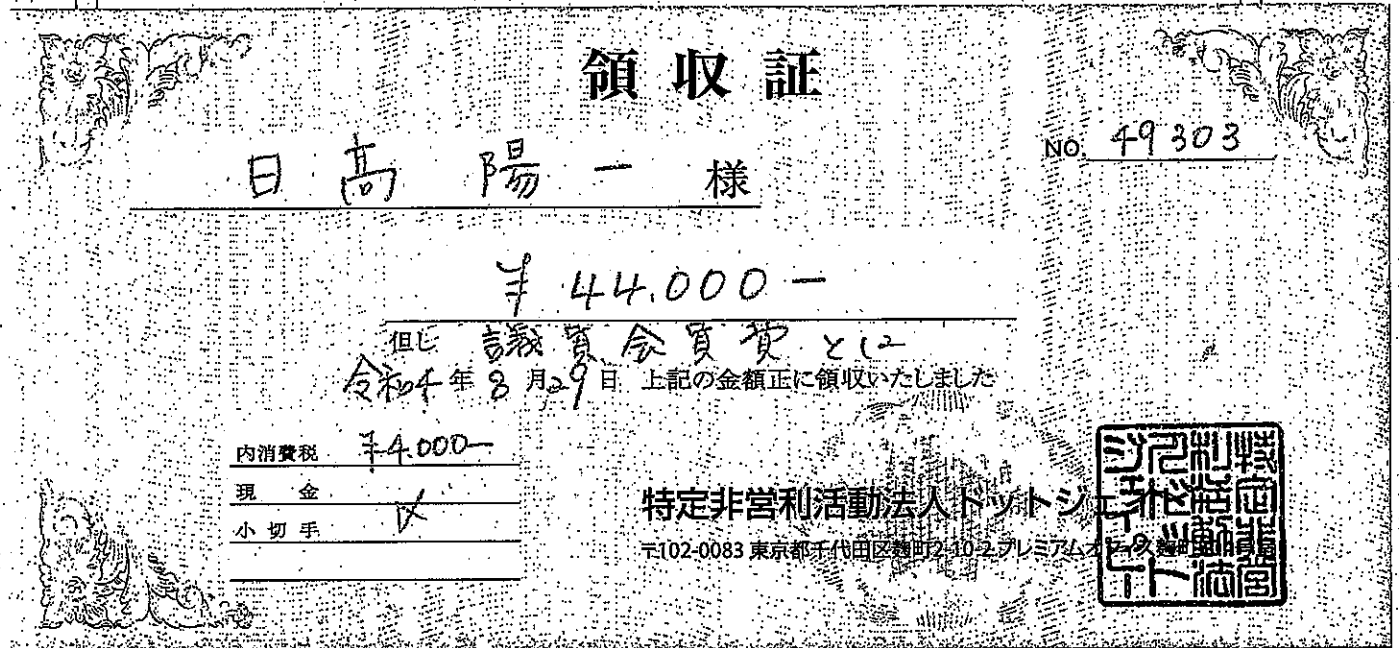 領収証
NO. 49303
日高陽一 様
¥44,000-
但し 議員会員費として
令和4年8月29日 上記の金額正に領収いたしました
内消費税 ¥4,000-
現金
小切手
特定非営利活動法人ドットジェイピー
〒102-0083 東京都千代田区麹町2-10-2プレミアムオフィス麹町
特定非営
利活動法
人ドット
ジェイピー